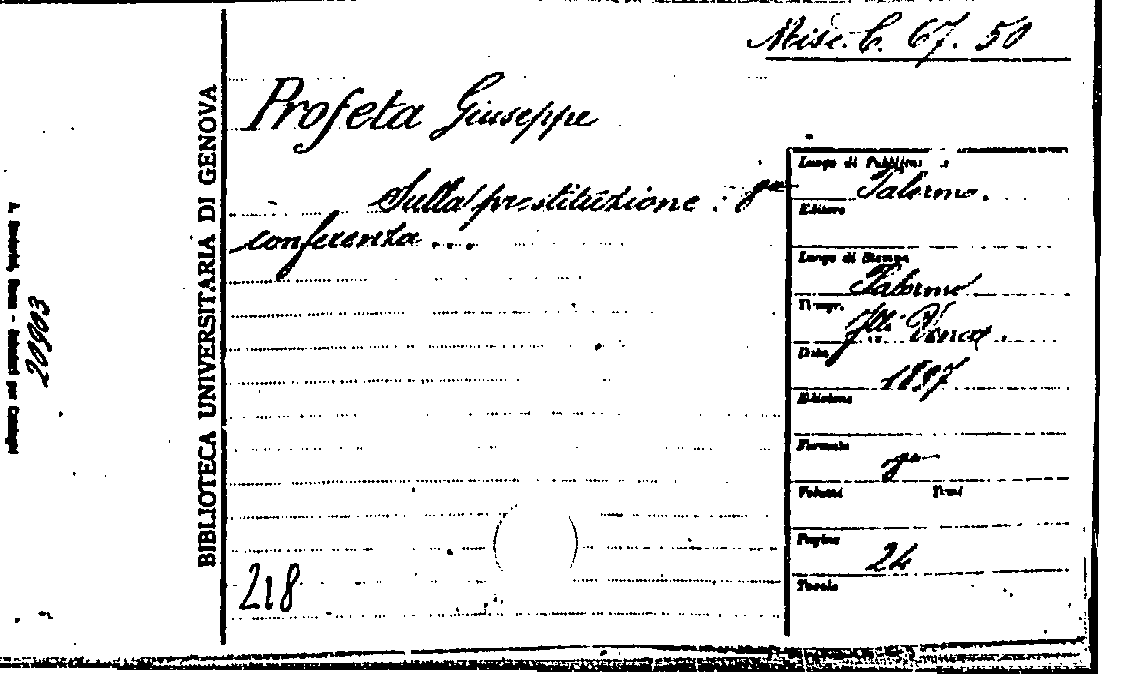 Misc. C. 67. 50
Profeta Giuseppe
Sulla prostituzione :
conferenza ...
218
BIBLIOTECA UNIVERSITARIA DI GENOVA
20903
Luogo di Pubblicaz
Palermo.
Editore
Luogo di Stampa
Palermo
Tipogr.
flli Vena.
Data
1897
Edizione
Formato
8º
Volumi Tomi
Pagine
24
Tavole